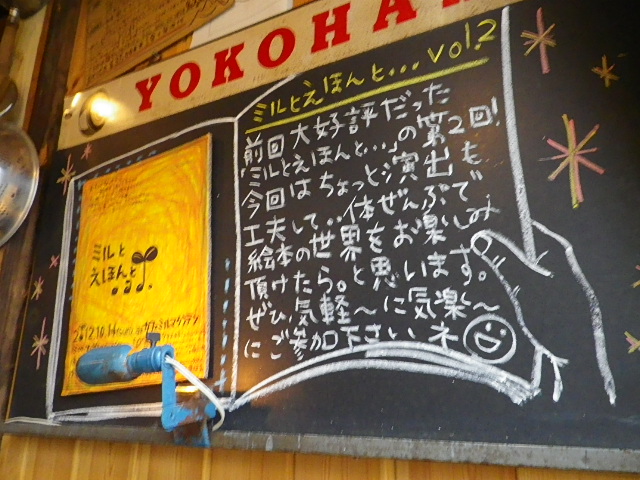 YOKOHAMA
ミルとえほんと… vol.2
前回大好評だった
「ミルとえほんと…」の第2回!
今回はちょっと演出も
工夫して‥体ぜんぶで
絵本の世界をお楽しみ
頂けたら。と思います。
ぜひ気軽〜に気楽〜
にご参加下さいネ
ミルと
えほんと